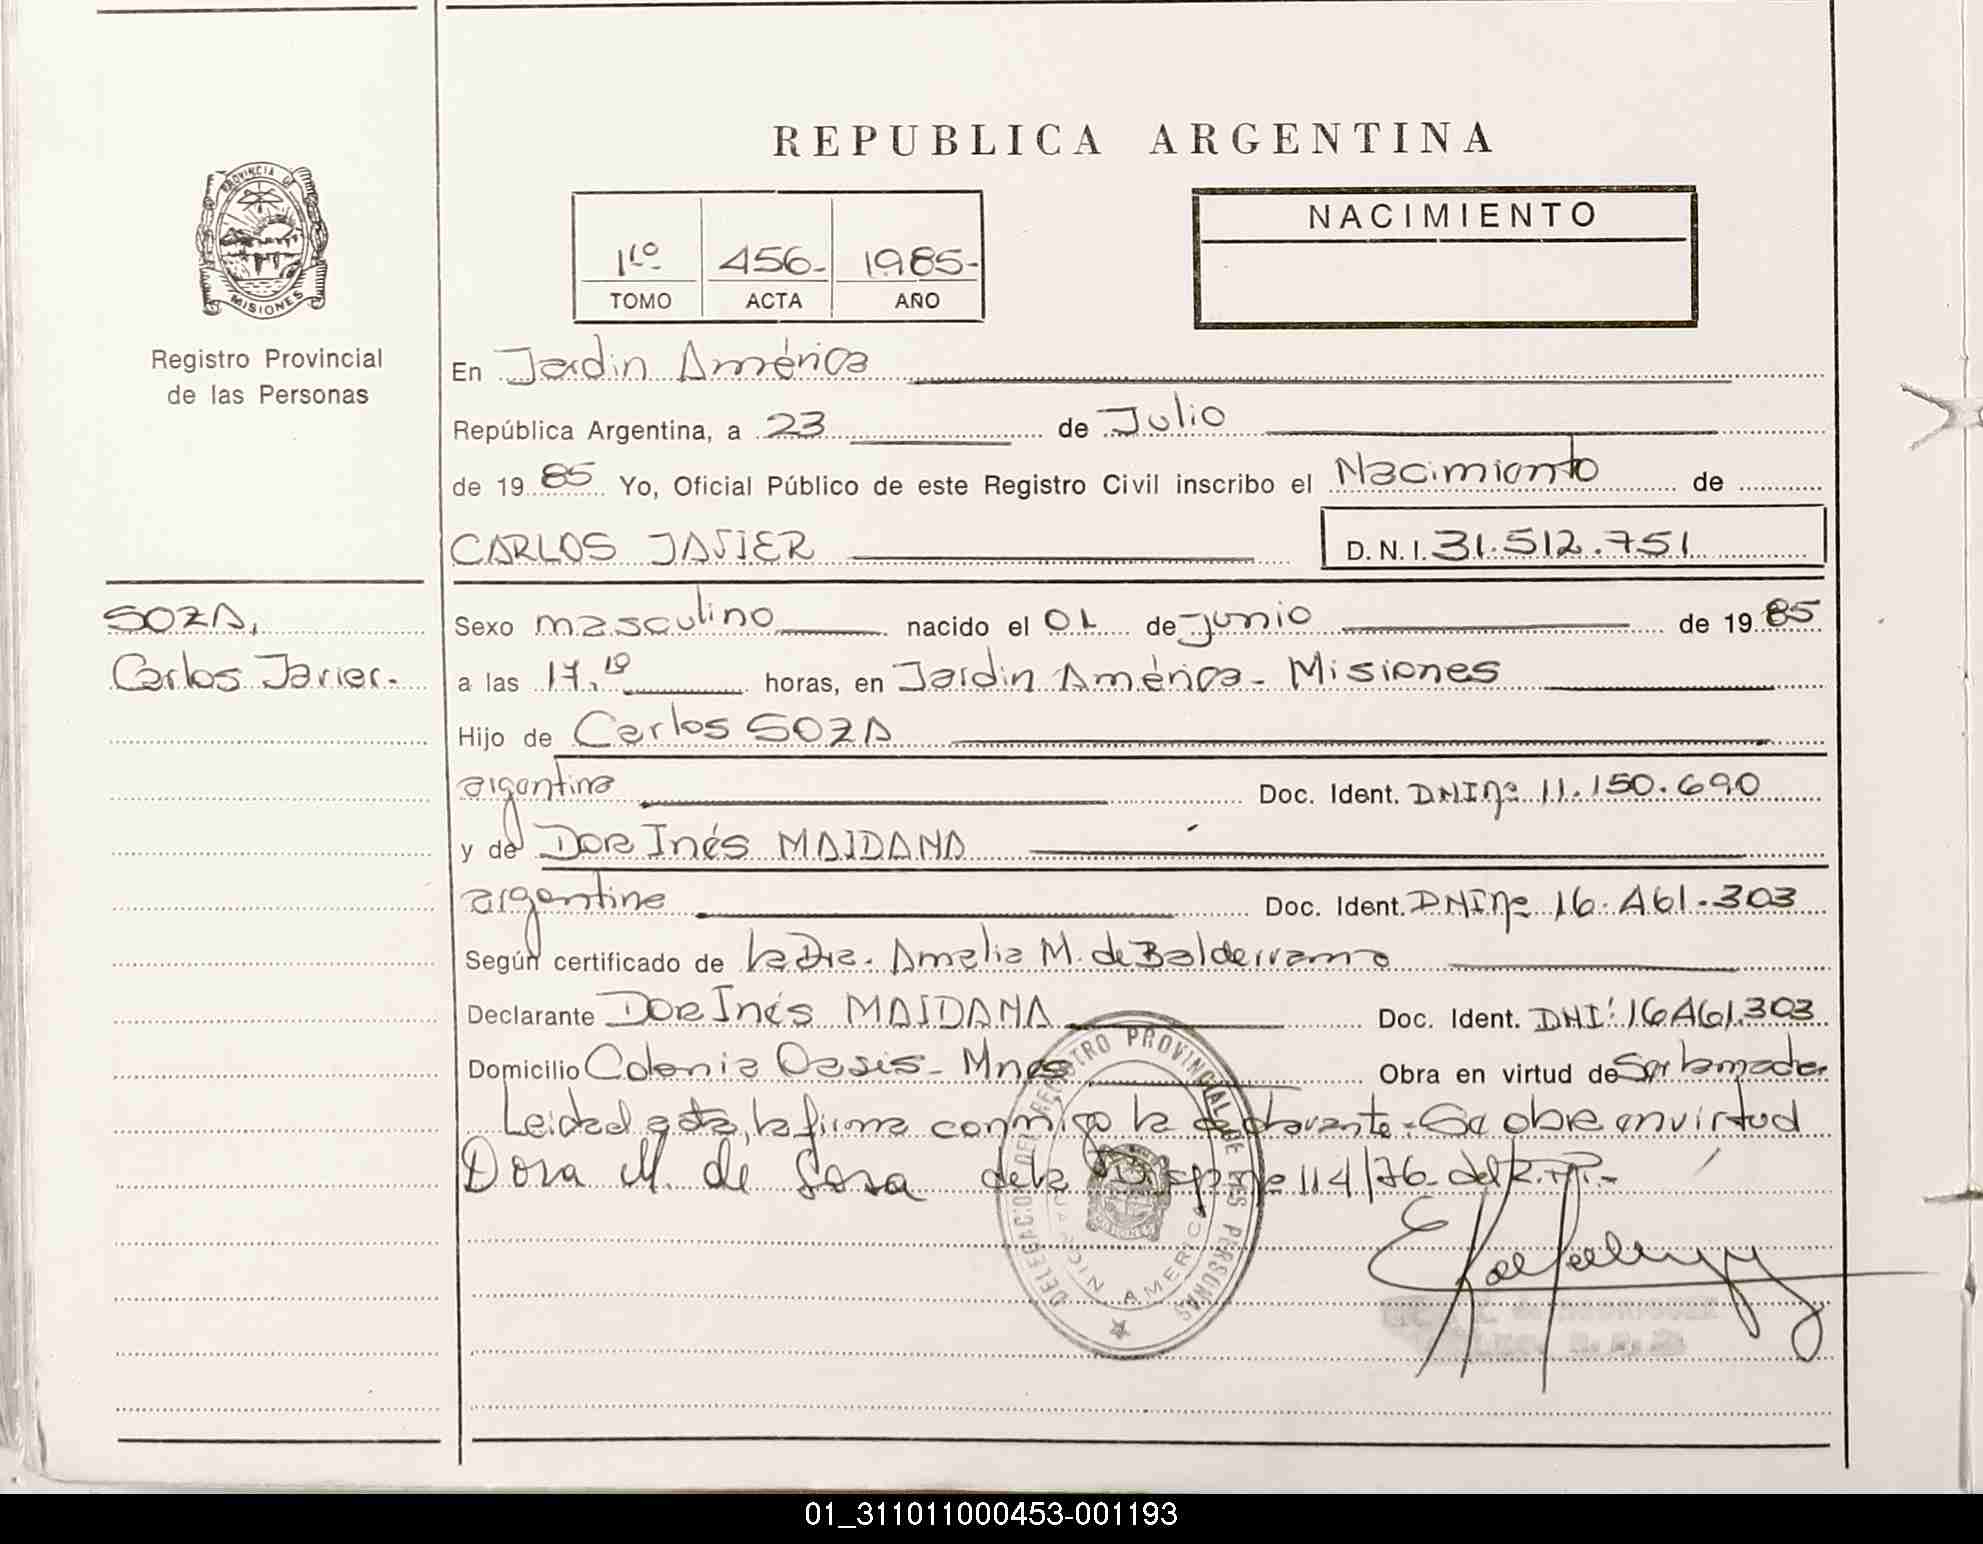 REPUBLICA ARGENTINA
PROVINCIA DE
MISIONES
Registro Provincial
de las Personas
1ro 456- 1985-
TOMO ACTA AÑO
NACIMIENTO
En Jardin América
República Argentina, a 23 de Julio
de 1985 Yo, Oficial Público de este Registro Civil inscribo el Nacimiento de
CARLOS JAVIER D.N.I. 31.512.751
SOZA,
Carlos Javier.-
Sexo masculino nacido el 01 de junio de 1985
a las 17,10 horas, en Jardin América- Misiones
Hijo de Carlos SOZA
argentina Doc. Ident. DNI nº 11.150.690
y de Dora Inés MAIDANA
argentina Doc. Ident. DNI nº 16.461.303
Según certificado de la Dra. Amalia M. de Balderrama
Declarante Dora Inés MAIDANA Doc. Ident. DNI: 16461.303
Domicilio Colonia Oasis- Mnes Obra en virtud de Ser la madre.
Leída el acta, la firma conmigo la declarante.- Se obra en virtud
Dora M. de Sosa de la Disp. nº 114/76- del R.P.P.-
DELEGACION DEL REGISTRO PROVINCIAL DE LAS PERSONAS
JARDIN AMERICA
01_311011000453-001193